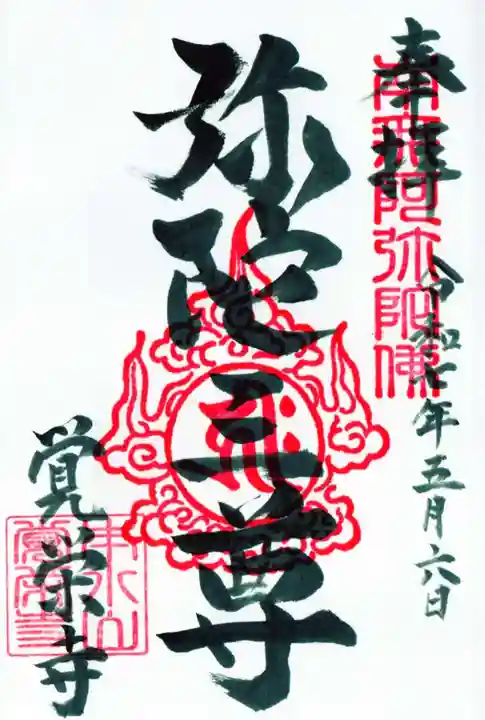 奉拝
南無阿弥陀佛
令和七年五月六日
弥陀三尊
覚栄寺